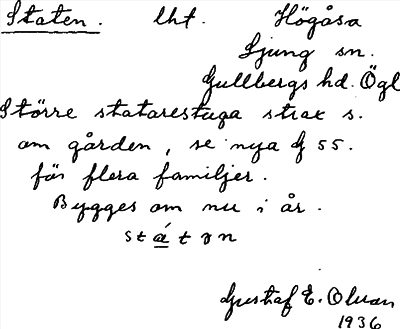 Staten. lht. Högåsa
Ljung sn.
Gullbergs hd. Ögl
Större statarestuga strax s.
om gården, se nya G 55.
för flera familjer.
Bygges om nu i år.
stá̱tən
Gustaf E. Olvan
1936